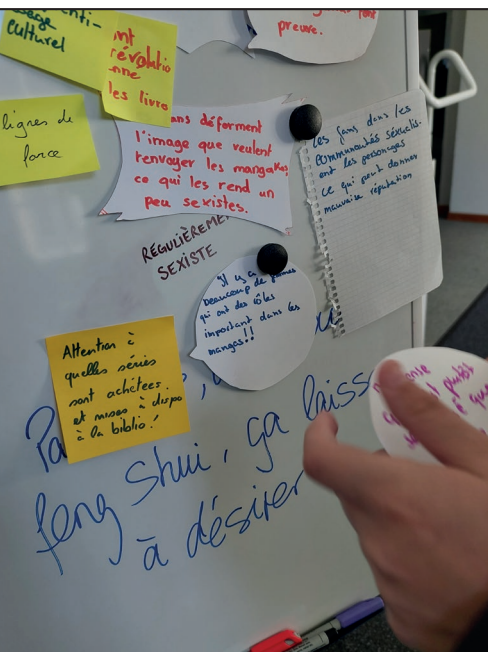 culturel
révolutio
les livro
preuve.
lignes de
force
ans déforment
l'image que veulent
renvoyer les mangakas
ce qui les rend un
peu sexistes.
les fans dans les
communautés sexualis-
ent les personnages
ce qui peut donner
mauvaise réputation
RÉGULIÈREME
SEXISTE
Il y a
beaucoup de femmes
qui ont des rôles
important dans les
mangas!!
Attention à
quelles séries
sont achetées
et mises à dispo
à la biblio!
plutôt
que
Pa
feng shui, ça laisse
à désirer